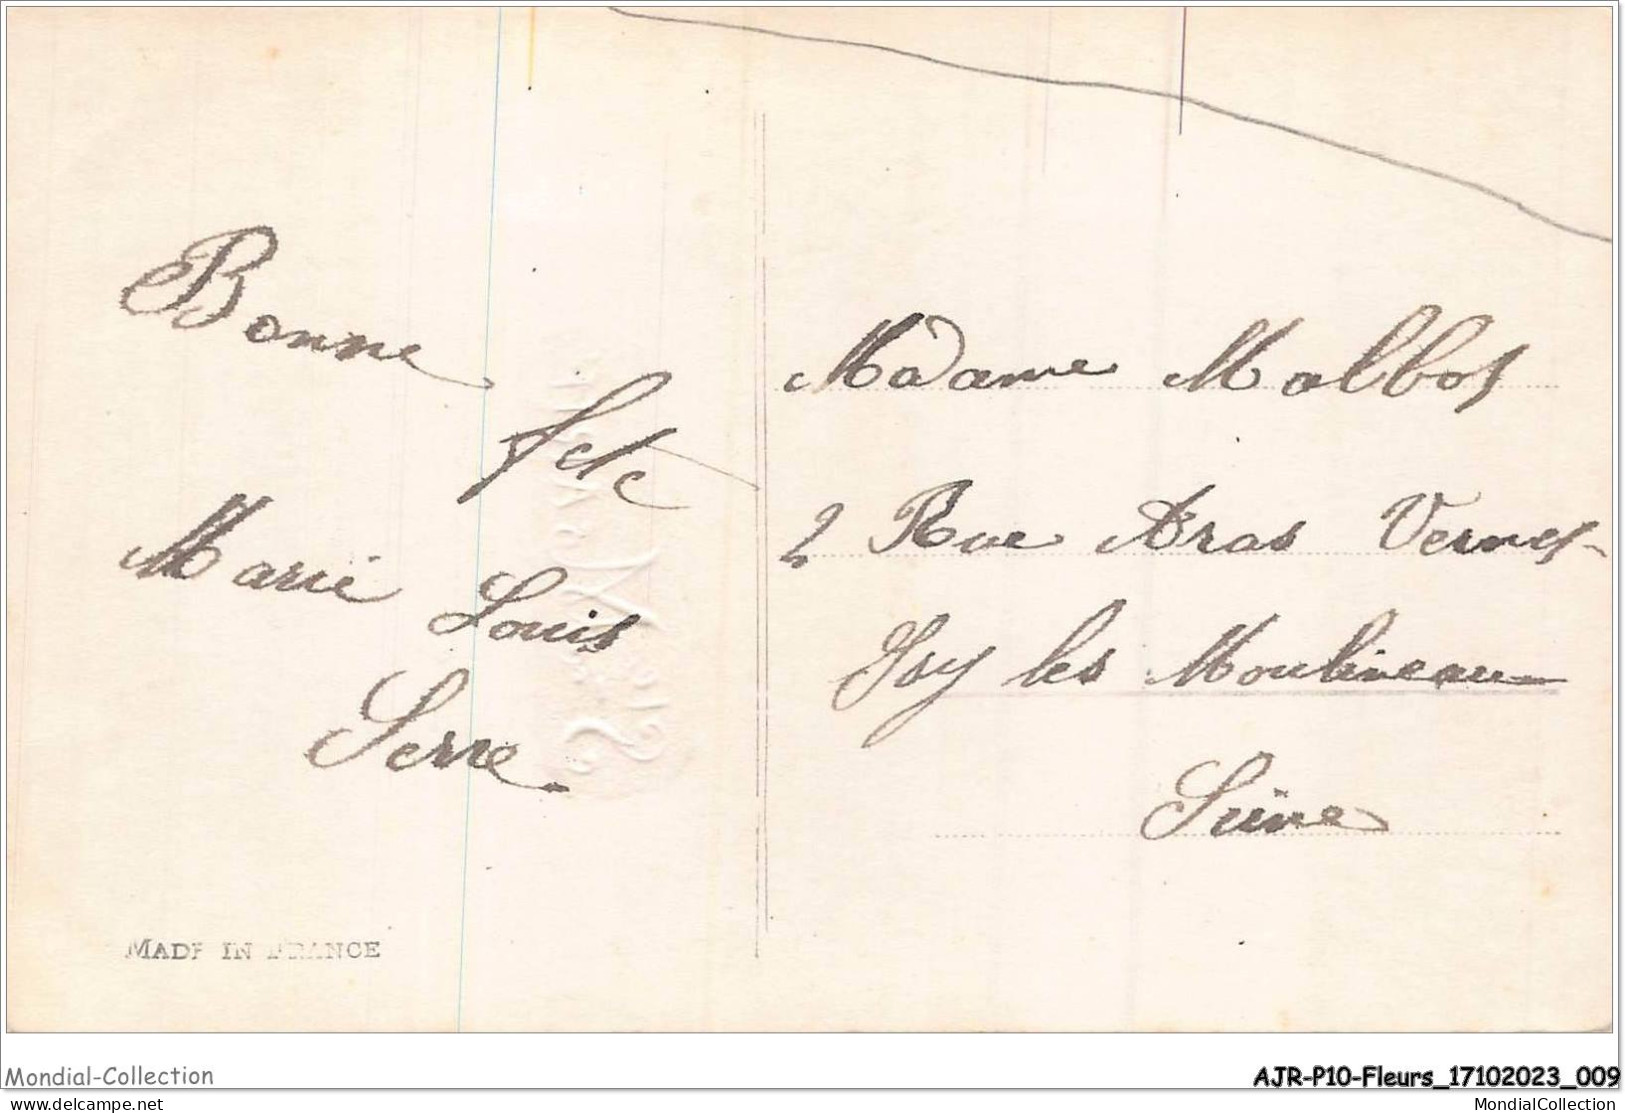 Bonne
fete
Marie Louis
Serre
MADE IN FRANCE
Madame Malbos
2 Rue Aras Vernet
Issy les Moulineau
Seine
Mondial-Collection
AJR-P10-Fleurs_17102023_009
www.delcampe.net
MondialCollection